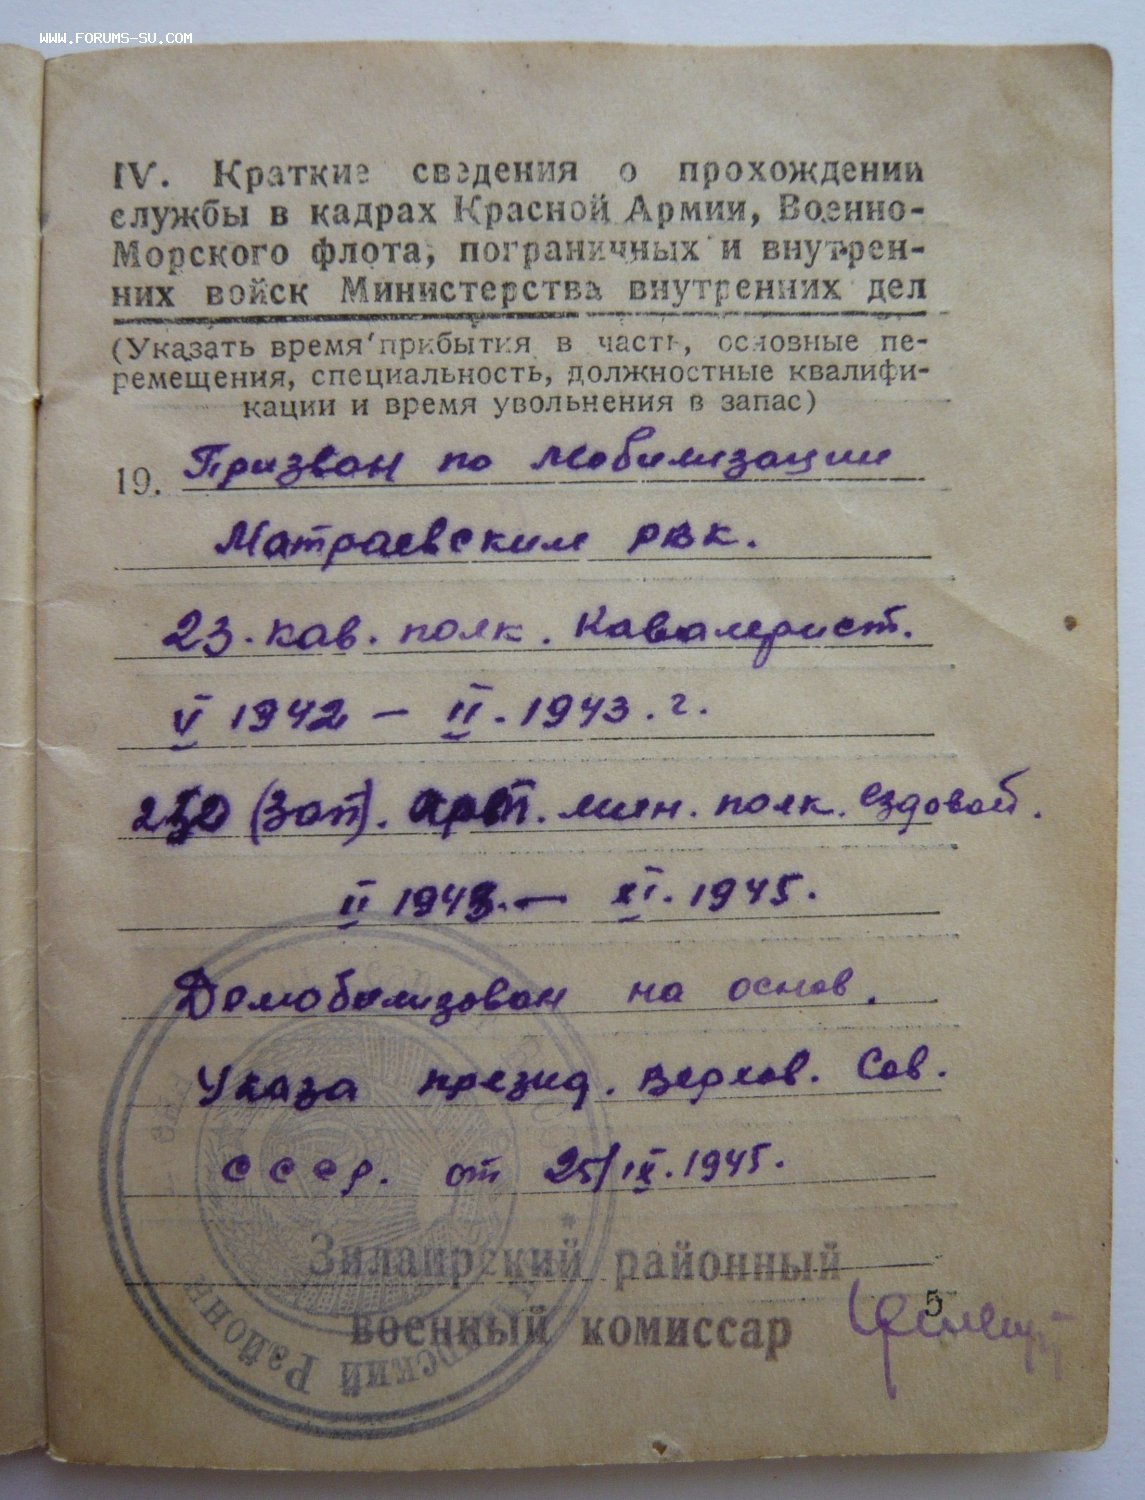 WWW.FORUMS-SU.COM
IV. Краткие сведения о прохождении
службы в кадрах Красной Армии, Военно-
Морского флота, пограничных и внутрен-
них войск Министерства внутренних дел
(Указать время прибытия в часть, основные пе-
ремещения, специальность, должностные квалифи-
кации и время увольнения в запас)
19. Призван по мобилизации
Матраевским РВК.
23. кав. полк. Кавалерист.
V 1942 — II. 1943. г.
(Зап). арт. мин. полк. ездовой.
II 1943. — XI. 1945.
Демобилизован на основ.
Указа презид. Верхов. Сов.
СССР. от 25/IX. 1945.
Зилаирский районный
военный комиссар
5